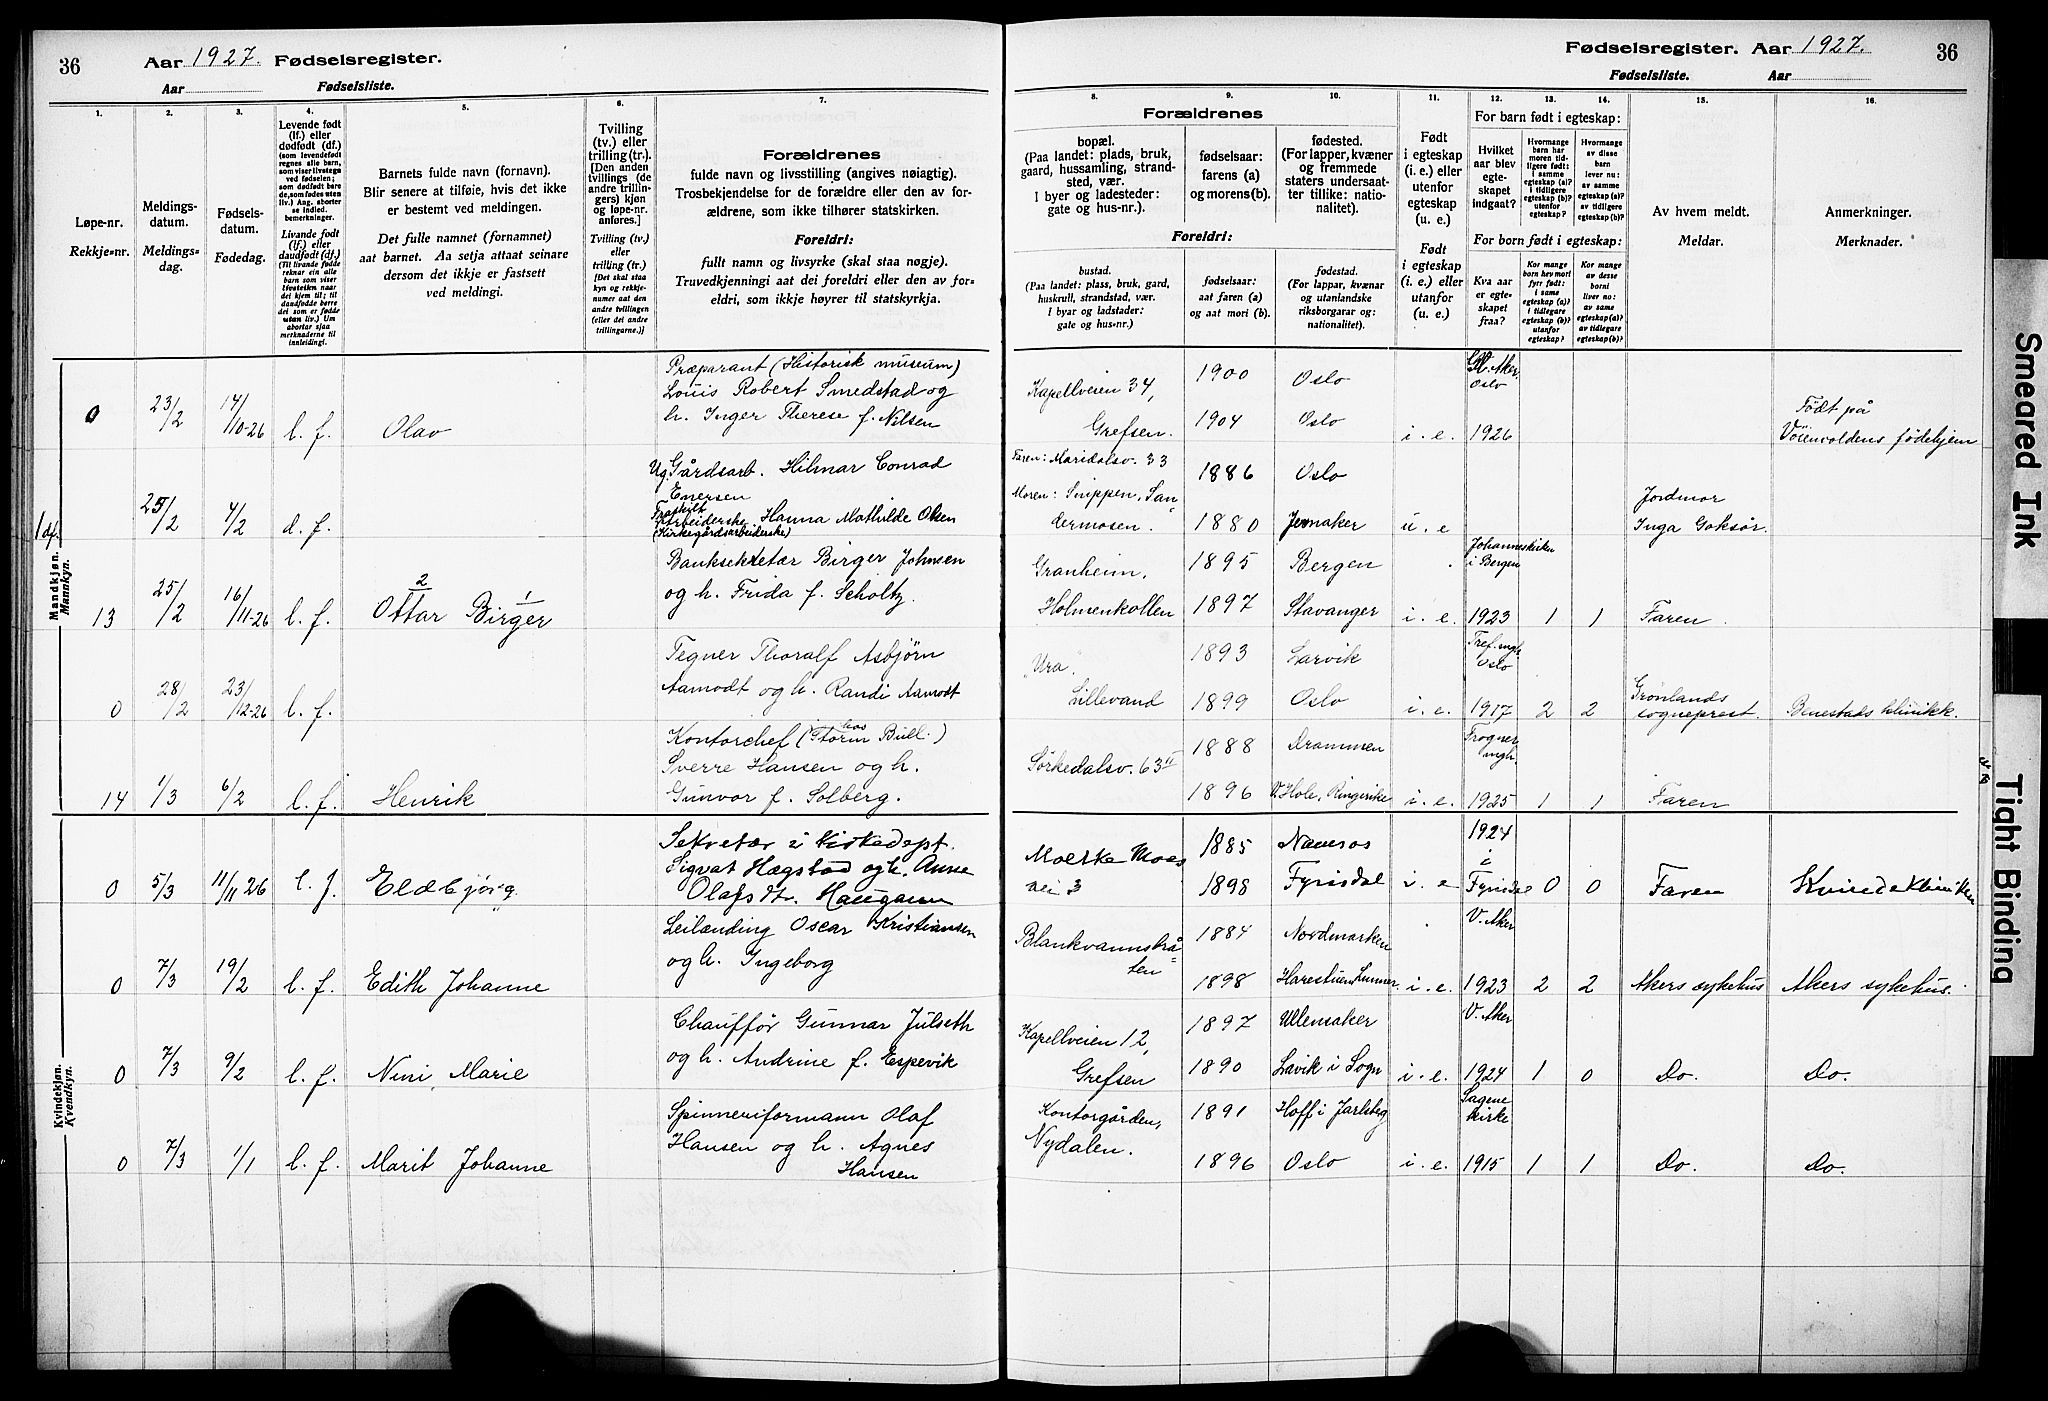 36 Aar 1927. Fødselsregister.
Aar Fødselsliste.
Fødselsregister. Aar 1927. 36
Fødselsliste. Aar
1. 2. 3. 4. 5. 6. 7.
Løpe-nr.
Rekkje=nr.
Meldings-
datum.
Meldings=
dag.
Fødsels-
datum.
Fødedag.
Levende født
(lf.) eller
dødfødt (df.)
(som levendefødt
regnes alle barn,
som viser livstegn
ved fødselen;
som dødfødt bare
de, som fødes uten
liv.) Ang. aborter
se indled.
bemerkninger.
Livande født
(lf.) eller
daudfødt (df.)
Barnets fulde navn (fornavn).
Blir senere at tilføie, hvis det ikke
er bestemt ved meldingen.
Det fulle namnet (fornamnet)
aat barnet. Aa setja attaat seinare
dersom det ikkje er fastsett
ved meldingi.
Tvilling
(tv.) eller
trilling (tr.).
[Den anden
tvillings (de
andre trillin-
gers) kjøn
og løpe-nr.
anføres.]
Tvilling (tv.)
eller
trilling (tr.)
[Det skal staa
kyn og rekkje-
numer aat den
andre tvillingen
(eller dei andre
trillingarne.)]
Forældrenes
fulde navn og livsstilling (angives nøiagtig).
Trosbekjendelse for de forældre eller den av for-
ældrene, som ikke tilhører statskirken.
Foreldri:
fullt namn og livsyrke (skal staa nøgje).
Truvedkjenningi aat dei foreldri eller den av for-
eldri, som ikkje høyrer til statskyrkja.
8. 9. 10. 11. 12. 13. 14. 15. 16.
Forældrenes
bopæl.
(Paa landet: plads, bruk,
gaard, hussamling, strand-
sted, vær.
I byer og ladesteder:
gate og hus-nr.).
fødselsaar:
farens (a)
og morens(b).
fødested.
(For lapper, kvæner
og fremmede
staters undersaat-
ter tillike: natio-
nalitet).
Foreldri:
bustad.
(Paa landet: plass, bruk, gard,
huskrull, strandstad, vær.
I byar og ladstader:
gate og hus=nr.)
fødselsaar:
aat faren (a)
og aat mori (b).
fødestad.
(For lappar, kvænar
og utanlandske
riksborgarar og:
nationalitet).
Født
i egteskap
(i. e.) eller
utenfor
egteskap
(u. e.)
Født
i egteskap
(i. e.) eller
utanfor
(u. e.)
For barn født i egteskap:
Hvilket
aar blev
egte-
skapet
indgaat?
Hvormange
barn har
moren tid-
ligere født:
i samme
egteskap (a)?
i tidligere
egteskap (b)?
utenfor
egteskap?
Hvormange
av disse
barn
lever nu:
av samme
egteskap (a)?
av tidligere
egteskap (b)?
For born født i egteskap:
Kva aar
er egte-
skapet
fraa?
Kor mange
born hev mori
fyrr født:
i same
egteskap (a)?
i tidlegare
egteskap (b)?
utanfor
egteskap?
Kor mange
av desse
borni
liver no:
av same
egteskap(a)?
av tidlegare
egteskap (b)?
Av hvem meldt.
Meldar.
Anmerkninger.
Merknader.
Mandkjøn.
Mannkyn.
Præparant (Historisk museum)
Louis Robert Smedstad og
h. Inger Therese f. Nilsen
0 23/2 14/10-26 l. f. Olav
Kapellveien 34,
Grefsen.
1900 Oslo Gl. Aker, Oslo
1904 Oslo i. e. 1926
Født på
Vöienvoldens fødehjem
1 df. 25/2 4/2 d. f.
Ug. Gårdsarb. Hilmar Conrad
Enersen
Fraskilt
Arbeiderske Hanna Mathilde Olsen
(Kirkegårdsarbeiderske)
Faren: Maridalsv. 33
Moren: Snippen, San-
dermosen.
1886 Oslo
1880 Jevnaker u. e
Jordmor
Inga Goksør.
13 25/2 16/11-26 l. f. Ottar 2 Birger 1
Banksekretær Birger Johnsen
og h. Frida f. Scholtz.
Granheim,
Holmenkollen
1895 Bergen Johanneskirken i Bergen
1897 Stavanger i. e. 1923 1 1 Faren.
0 28/2 23/12-26 l. f.
Tegner Thoralf Asbjörn
Aamodt og h. Randi Aamodt
"Ura"
Lillevand
1893 Larvik Tref. mgh. Oslo
1899 Oslo i. e. 1917 2 2
Grønlands
sogneprest.
Benestads klinikk.
14 1/3 6/2 l. f. Henrik
Kontorchef (hos Storm Bull.)
Sverre Hansen og h.
Gunvor f. Solberg.
Sörkedalsv. 63 II
1888 Drammen Frogner mgh.
1896 Hole, Ringerike i. e. 1925 1 1 Faren
Kvindekjøn.
Kvendkyn.
0 5/3 11/11 26 l. f. Eldbjörg
Sekretær i Kirkedept.
Sigvat Hægstad og h. Anne
Olafsdtr. Haugann
Moltke Moes
vei 3
1885 1924
1898 Fyrisdal i. e i Fyrisdal 0 0 Faren Kvindeklinikken
0 7/3 19/2 l. f. Edith Johanne
Leilænding Oscar Kristiansen
og h. Ingeborg
Blankvannsbrå-
ten
1884 Nordmarken V. Aker
1898 Harestuen Lunner i. e. 1923 2 2 Akers sykehus Akers sykehus.
0 7/3 9/2 l. f. Nini Marie
Chauffør Gunnar Julseth
og h. Andrine f. Espevik
Kapellveien 12,
Grefsen
1897 Ullensaker V. Aker
1890 Lavik i Sogn i. e. 1924 1 0 Do. Do.
0 7/3 1/1 l. f. Marit Johanne
Spinneriformann Olaf
Hansen og h. Agnes
Hansen
Kontorgården,
Nydalen.
1891 Hoff i Jarlsberg Sagene kirke
1896 Oslo i. e. 1915 1 1 Do. Do.
Smeared Ink
Tight Binding